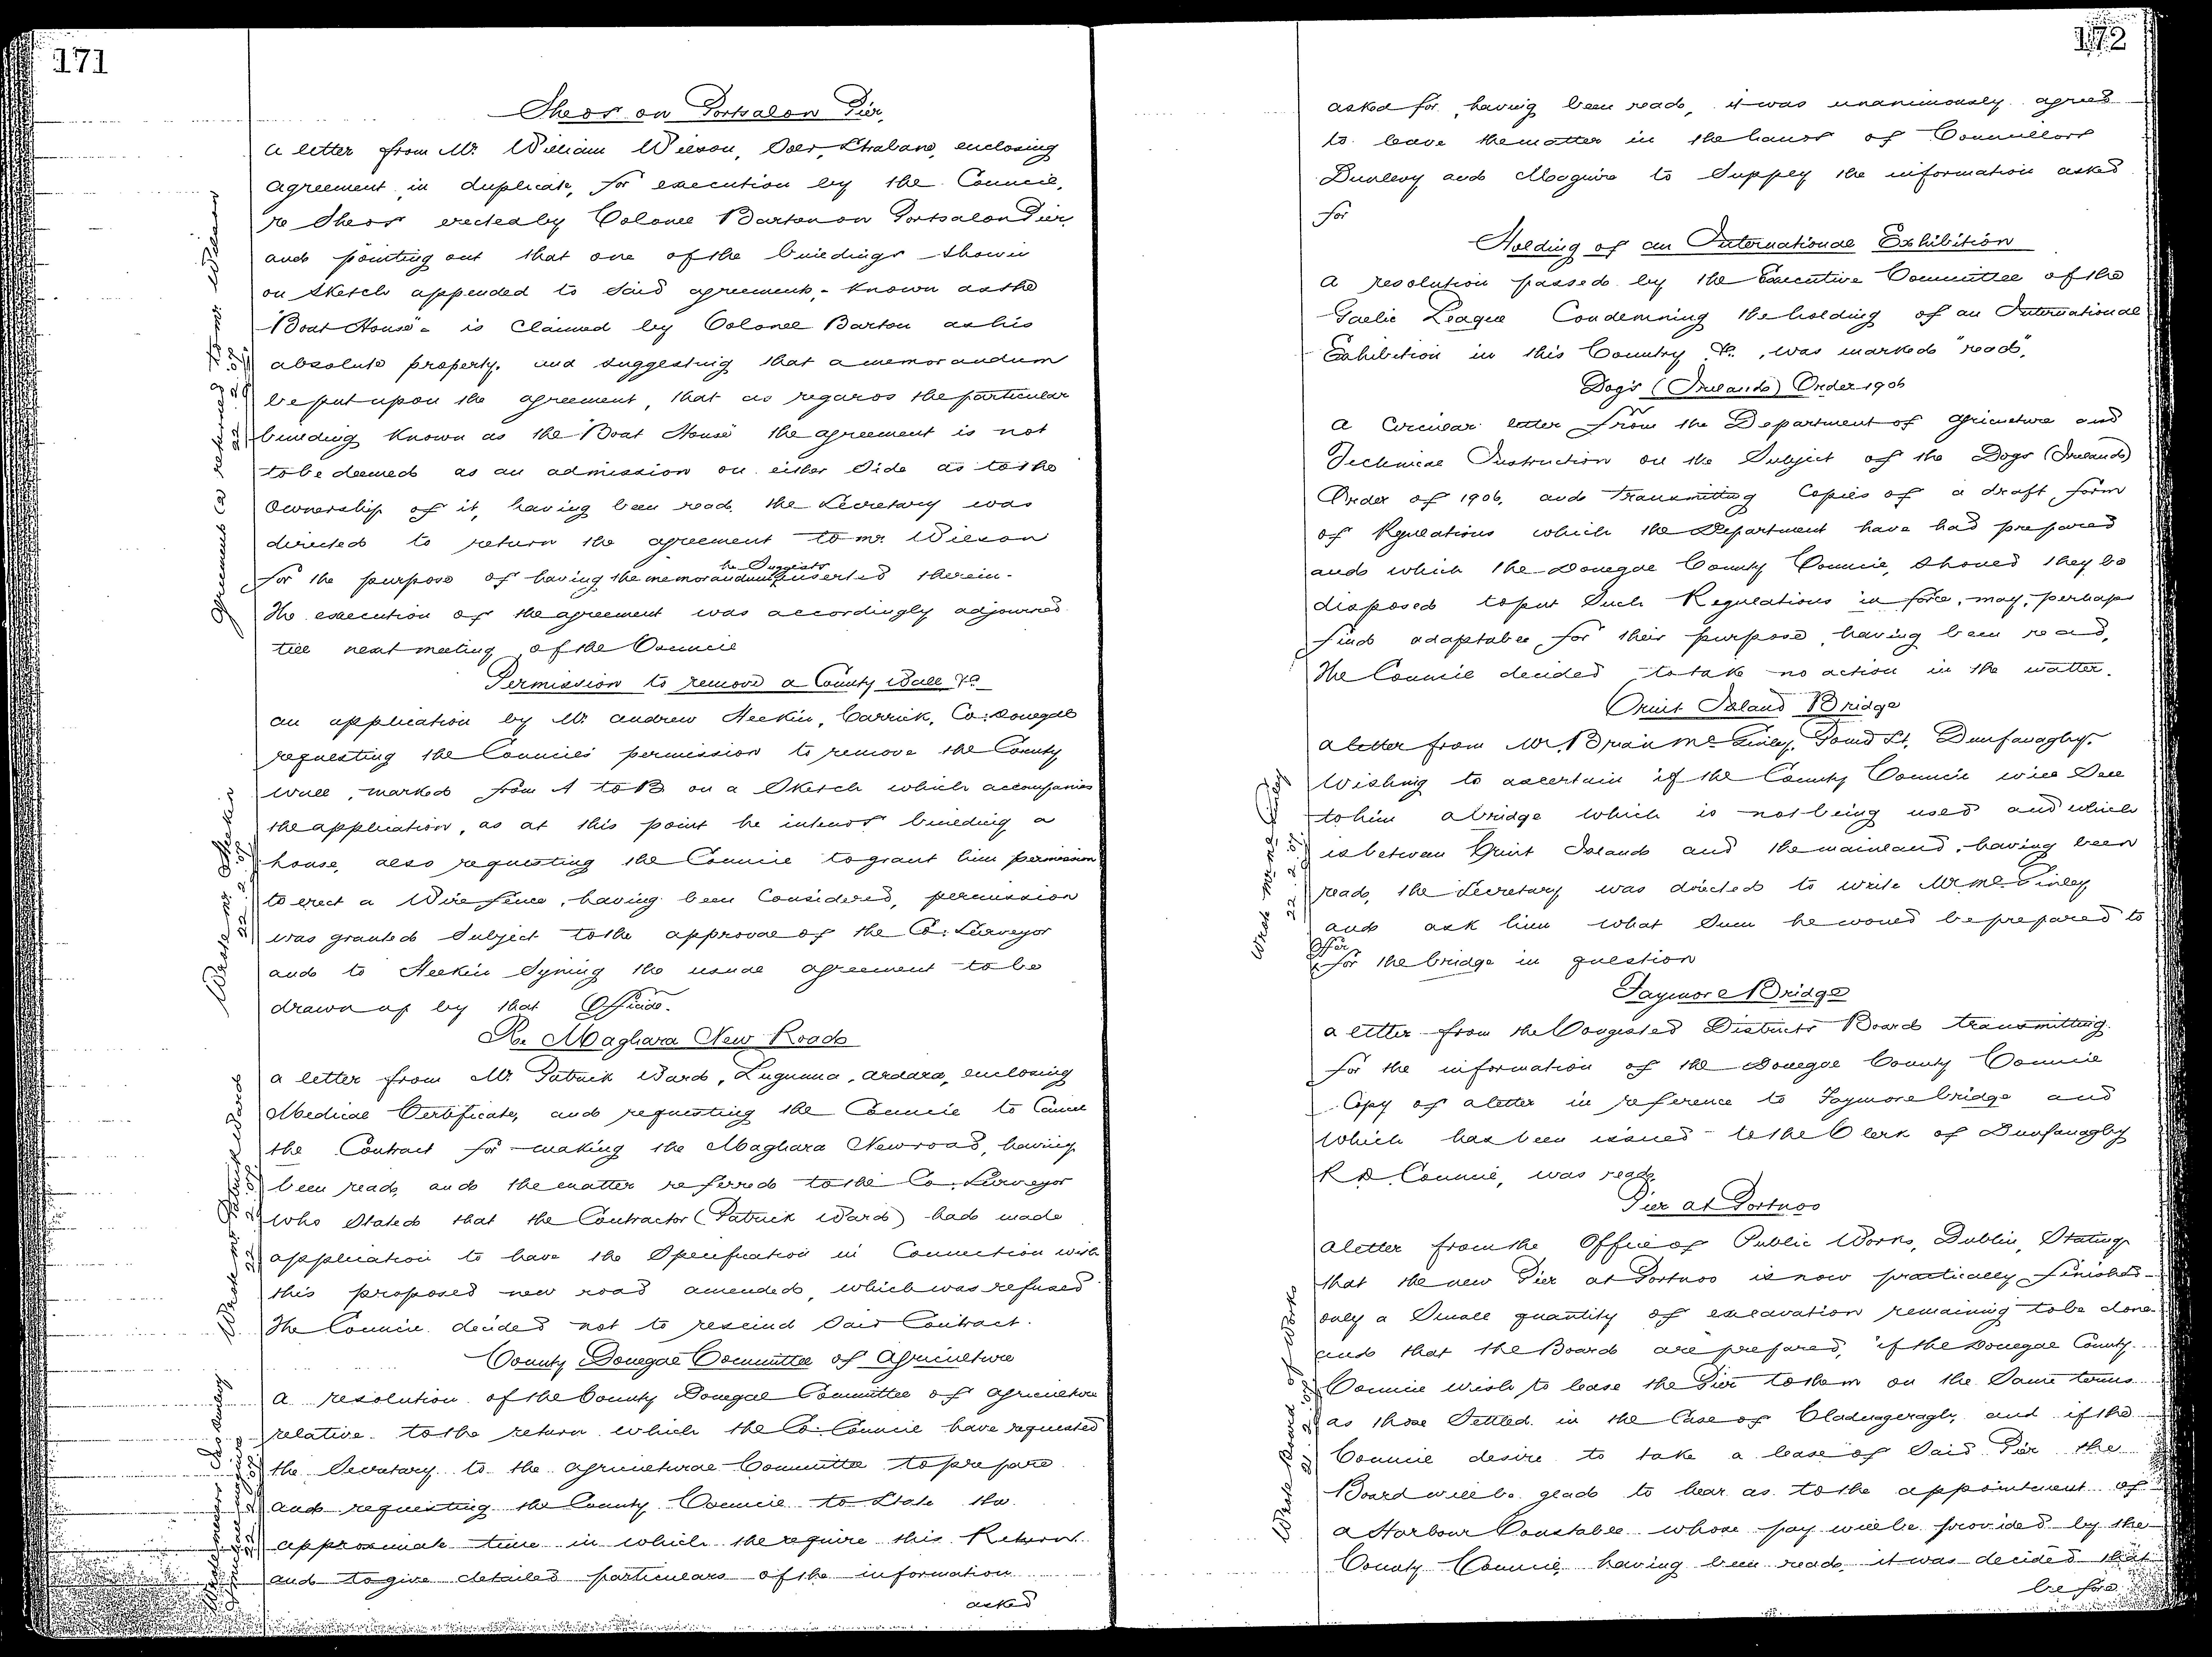 171
Sheds on Portsalon Pier
A letter from Mr. William Wilson, Solr, Strabane, enclosing
agreement in duplicate, for execution by the Council,
re Sheds erected by Colonel Barton on Portsalon Pier,
and pointing out that one of the buildings shown
on sketch appended to said agreement, - known as the
"Boat House" - is claimed by Colonel Barton as his
absolute property, and suggesting that a memorandum
be put upon the agreement, that as regards the particular
building known as the "Boat House" the agreement is not
to be deemed as an admission on either side as to the
ownership of it, having been read, the Secretary was
directed to return the agreement to Mr Wilson
he Suggests
for the purpose of having the memorandum inserted therein.
The execution of the agreement was accordingly adjourned
till next meeting of the Council
Agreement returned to Mr Wilson
22.2.07
Permission to remove a County Wall &c
An application by Mr Andrew Heekin, Carrick, Co: Donegal
requesting the Councils permission to remove the County
wall, marked from A to B on a Sketch which accompanies
the application, as at this point he intends building a
house, also requesting the Council to grant him permission
to erect a Wire fence, having been Considered, permission
was granted Subject to the approval of the Co: Surveyor
and to Heekin Signing the usual agreement to be
drawn up by that Official.
Wrote Mr Heekin
22.2.07
Re Maghara New Road
A letter from Mr. Patrick Ward, Lugunna, Ardara, enclosing
Medical Certificate, and requesting the Council to Cancel
the Contract for making the Maghara New road, having
been read, and the matter referred to the Co. Surveyor
who Stated that the Contractor (Patrick Ward) had made
application to have the Specification in Connection with
this proposed new road amended, which was refused
The Council decided not to rescind Said Contract.
Wrote Mr Patrick Ward
22.2.07
County Donegal Committee of Agriculture
A resolution of the County Donegal Committee of Agriculture
relative to the return which the Co. Council have requested
the Secretary to the Agricultural Committee to prepare
and requesting the County Council to State the
approximate time in which the require this Return
and to give detailed particulars of the information
asked
Wrote Messrs Jas Dunlevy
Maguire
22.2.07
172
asked for, having been read, it was unanimously agreed
to leave the matter in the hands of Councillors
Dunlevy and Maguire to Supply the information asked
for
Holding of an International Exhibition
A resolution passed by the Executive Committee of the
Gaelic League Condemning the holding of an International
Exhibition in this Country &c., was marked "read".
Dogs (Ireland) Order 1906
A Circular letter from the Department of Agriculture and
Technical Instruction on the Subject of the Dogs (Ireland)
Order of 1906, and transmitting Copies of a draft form
of Regulations which the Department have had prepared
and which the Donegal County Council, should they be
disposed to put Such Regulations in force, may, perhaps
find adaptable for their purpose, having been read,
The Council decided to take no action in the matter.
Cruit Island Bridge
A letter from Mr. Brian McGinley, Pound St, Dunfanaghy.
Wishing to ascertain if the County Council will Sell
to him a bridge which is not being used and which
is between Cruit Island and the mainland, having been
read, the Secretary was directed to write Mr McGinley
and ask him what Sum he would be prepared to
offer
for the bridge in question
Wrote Mr McGinley
22.2.07
Faymore Bridge
A letter from the Congested Districts Board transmitting
for the information of the Donegal County Council
Copy of a letter in reference to Faymore bridge and
which has been issued to the Clerk of Dunfanaghy
R.D. Council, was read.
Pier at Portnoo
A letter from the Office of Public Works, Dublin, Stating
that the new Pier at Portnoo is now practically finished -
only a Small quantity of excavation remaining to be done
and that the Board are prepared, if the Donegal County
Council wish, to lease the Pier to them on the Same terms
as those Settled in the Case of Cladnageragh, and if the
Council desire to take a lease of Said Pier the
Board will be glad to hear as to the appointment of
a Harbour Constable whose pay will be provided by the
County Council, having been read, it was decided that
before
Wrote Board of Works
21.2.07